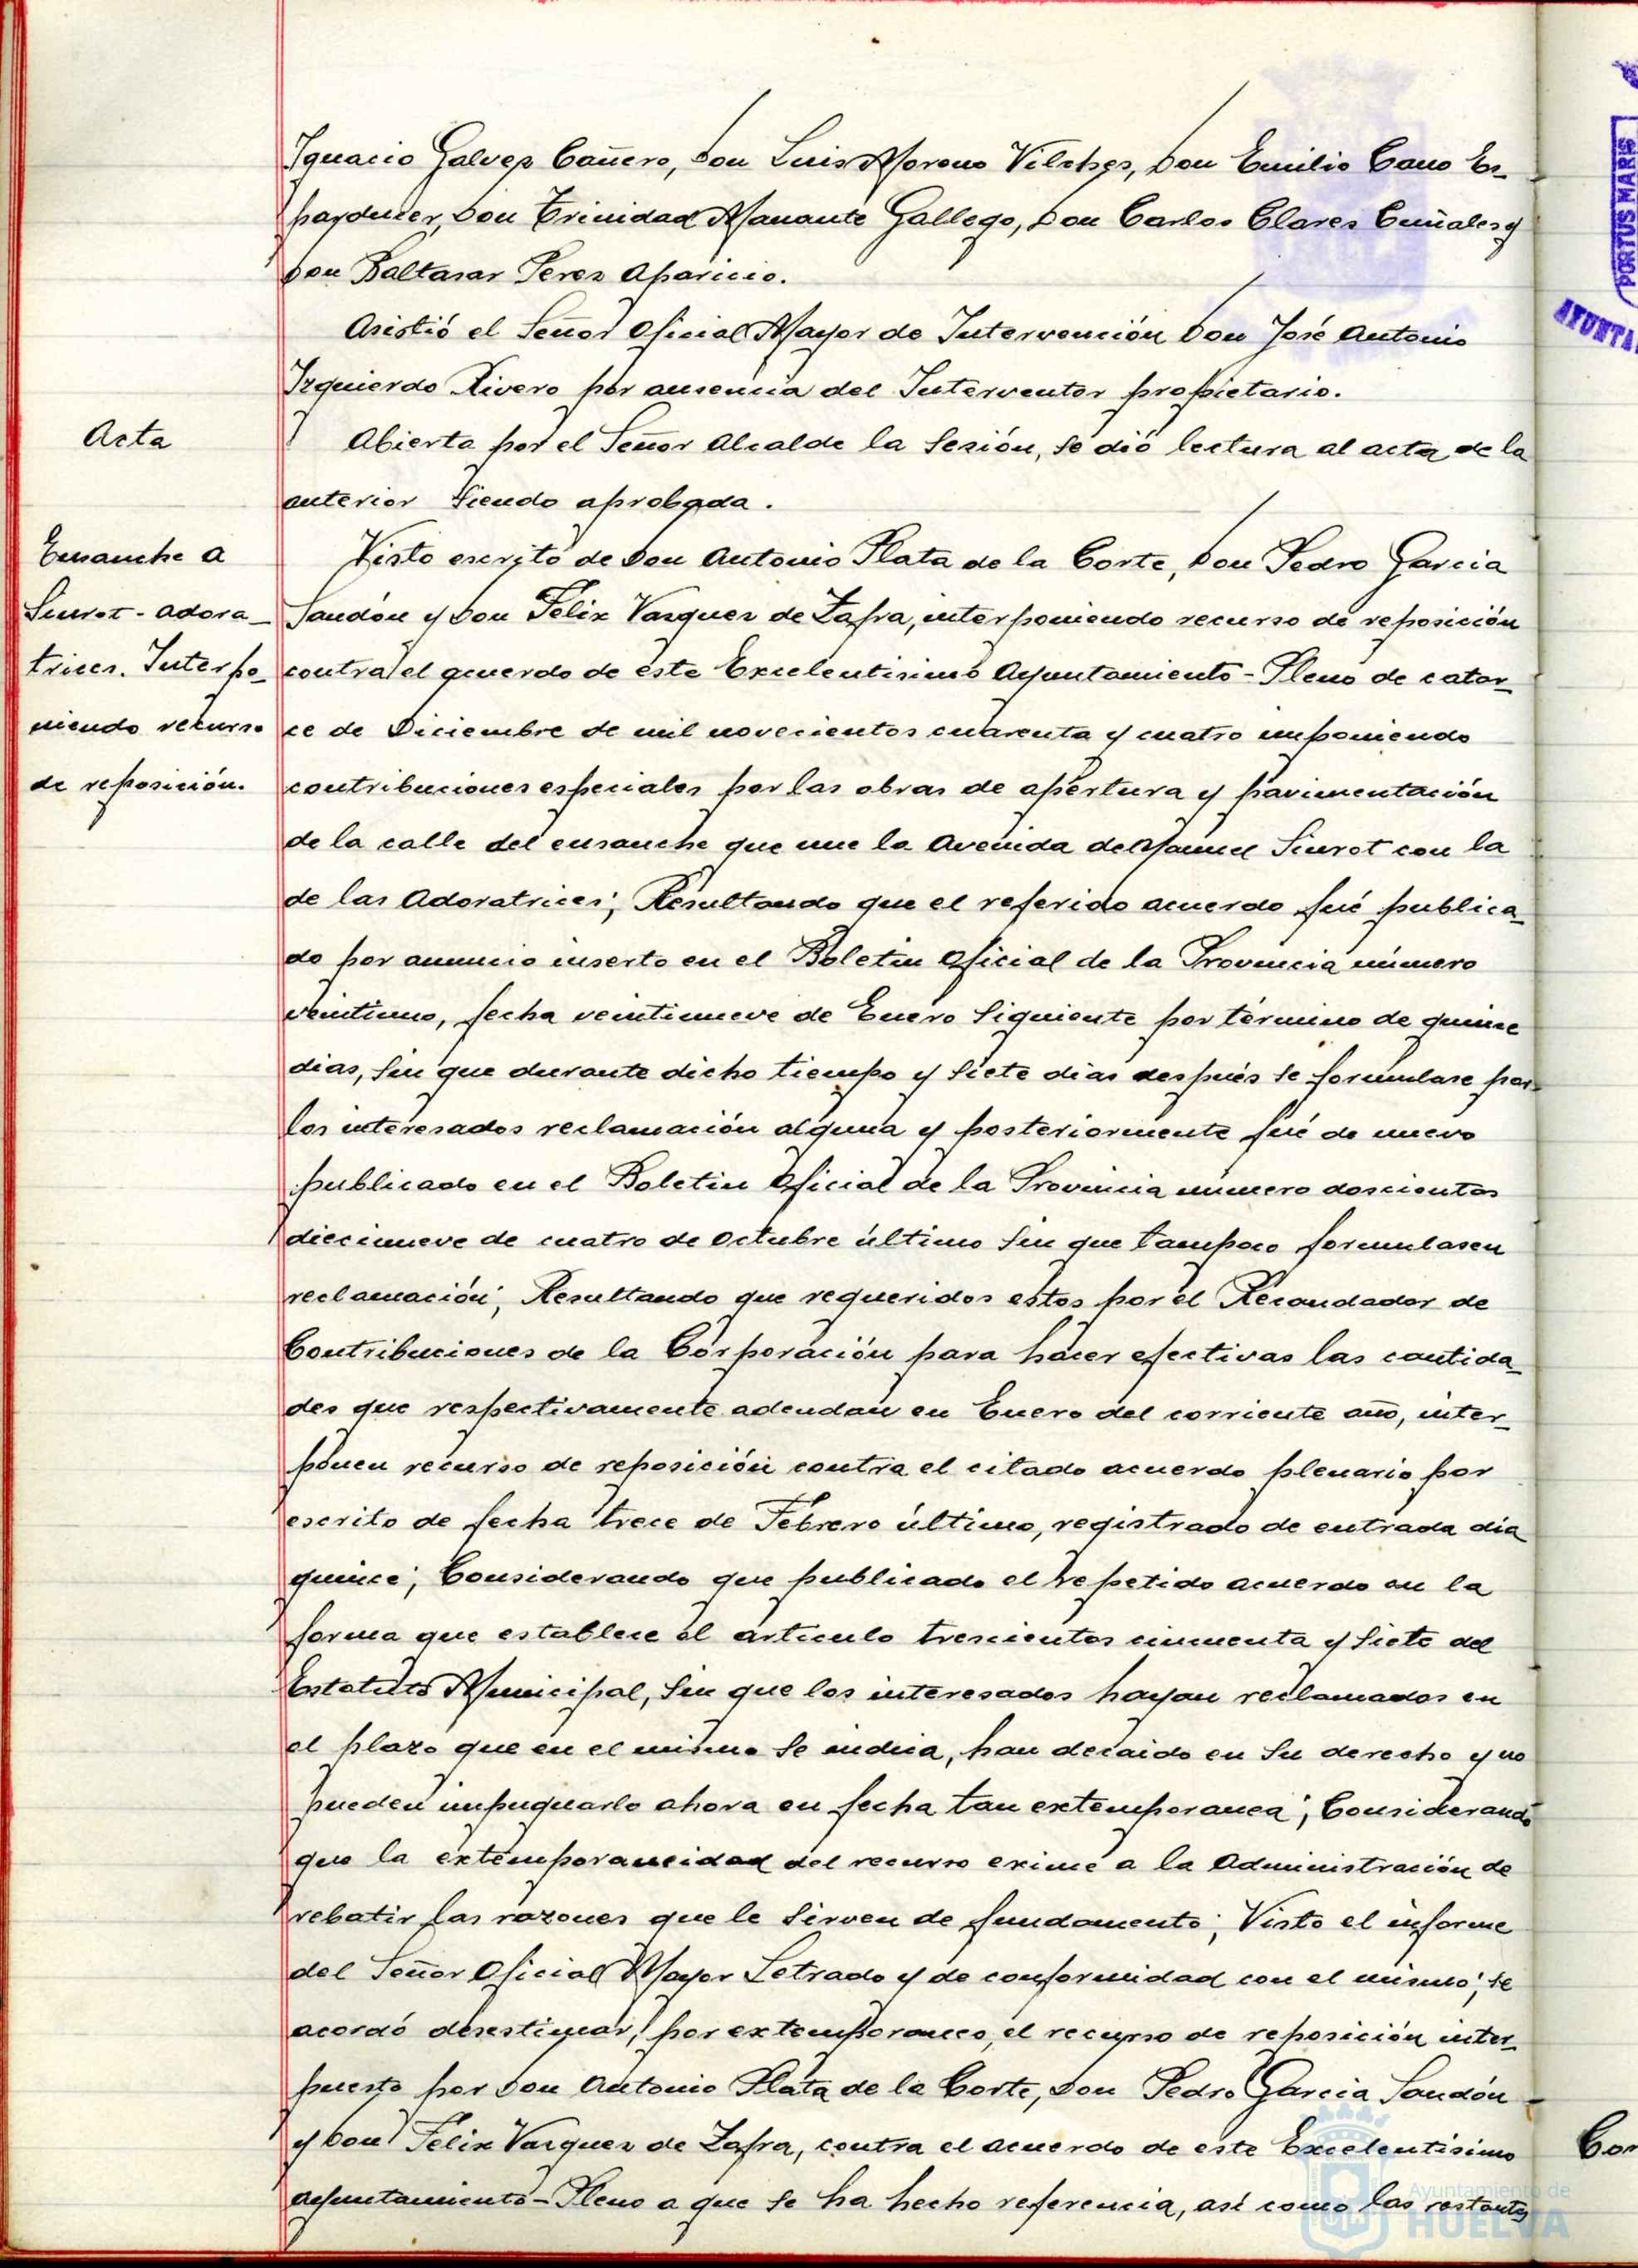 Ignacio Galvez Cañero, Don Luis Moreno Vilches, Don Emilio Cano Es-
parducer, Don Trinidad Manante Gallego, Don Carlos Clares Cuñales y
Don Baltasar Perez Aparicio.
Asistió el Señor Oficial Mayor de Intervención Don José Antonio
Izquierdo Rivero por ausencia del Interventor propietario.
Acta
Abierta por el Señor Alcalde la Sesión, se dió lectura al acta de la
anterior siendo aprobada.
Ensanche a
Siurot-Adora-
trices. Interpo-
niendo recurso
de reposición.
Visto escrito de Don Antonio Plata de la Corte, Don Pedro Garcia
Sandón y Don Felix Vazquez de Zafra, interponiendo recurso de reposición
contra el acuerdo de éste Excelentisimo Ayuntamiento-Pleno de cator-
ce de Diciembre de mil novecientos cuarenta y cuatro imponiendo
contribuciones especiales por las obras de apertura y pavimentación
de la calle del ensanche que une la Avenida de Manuel Siurot con la
de las Adoratrices; Resultando que el referido acuerdo fué publica-
do por anuncio inserto en el Boletin Oficial de la Provincia número
veintiuno, fecha veintinueve de Enero siguiente por término de quince
dias, sin que durante dicho tiempo y siete dias después se formulase por
los interesados reclamación alguna y posteriormente fué de nuevo
publicado en el Boletin Oficial de la Provincia número doscientos
diecinueve de cuatro de Octubre último sin que tampoco formulasen
reclamación; Resultando que requeridos estos por el Recaudador de
Contribuciones de la Corporación para hacer efectivas las cantida-
des que respectivamente adeudan en Enero del corriente año, inter-
ponen recurso de reposición contra el citado acuerdo plenario por
escrito de fecha trece de Febrero último, registrado de entrada dia
quince; Considerando que publicado el repetido acuerdo en la
forma que establece el articulo trescientos cincuenta y siete del
Estatuto Municipal, sin que los interesados hayan reclamados en
el plazo que en el mismo se indica, han decaido en su derecho y no
pueden impugnarlo ahora en fecha tan extemporanea; Considerando
que la extemporaneidad del recurso exime a la Administración de
rebatir las razones que le sirven de fundamento; Visto el informe
del Señor Oficial Mayor Letrado y de conformidad con el mismo; se
acordó desestimar, por extemporaneo, el recurso de reposición inter-
puesto por Don Antonio Plata de la Corte, Don Pedro Garcia Sandón
y Don Felix Vazquez de Zafra, contra el acuerdo de este Excelentisimo
Ayuntamiento-Pleno a que se ha hecho referencia, así como las restantes
PORTUS MARIS
AYUNTA
Con
Ayuntamiento de
HUELVA